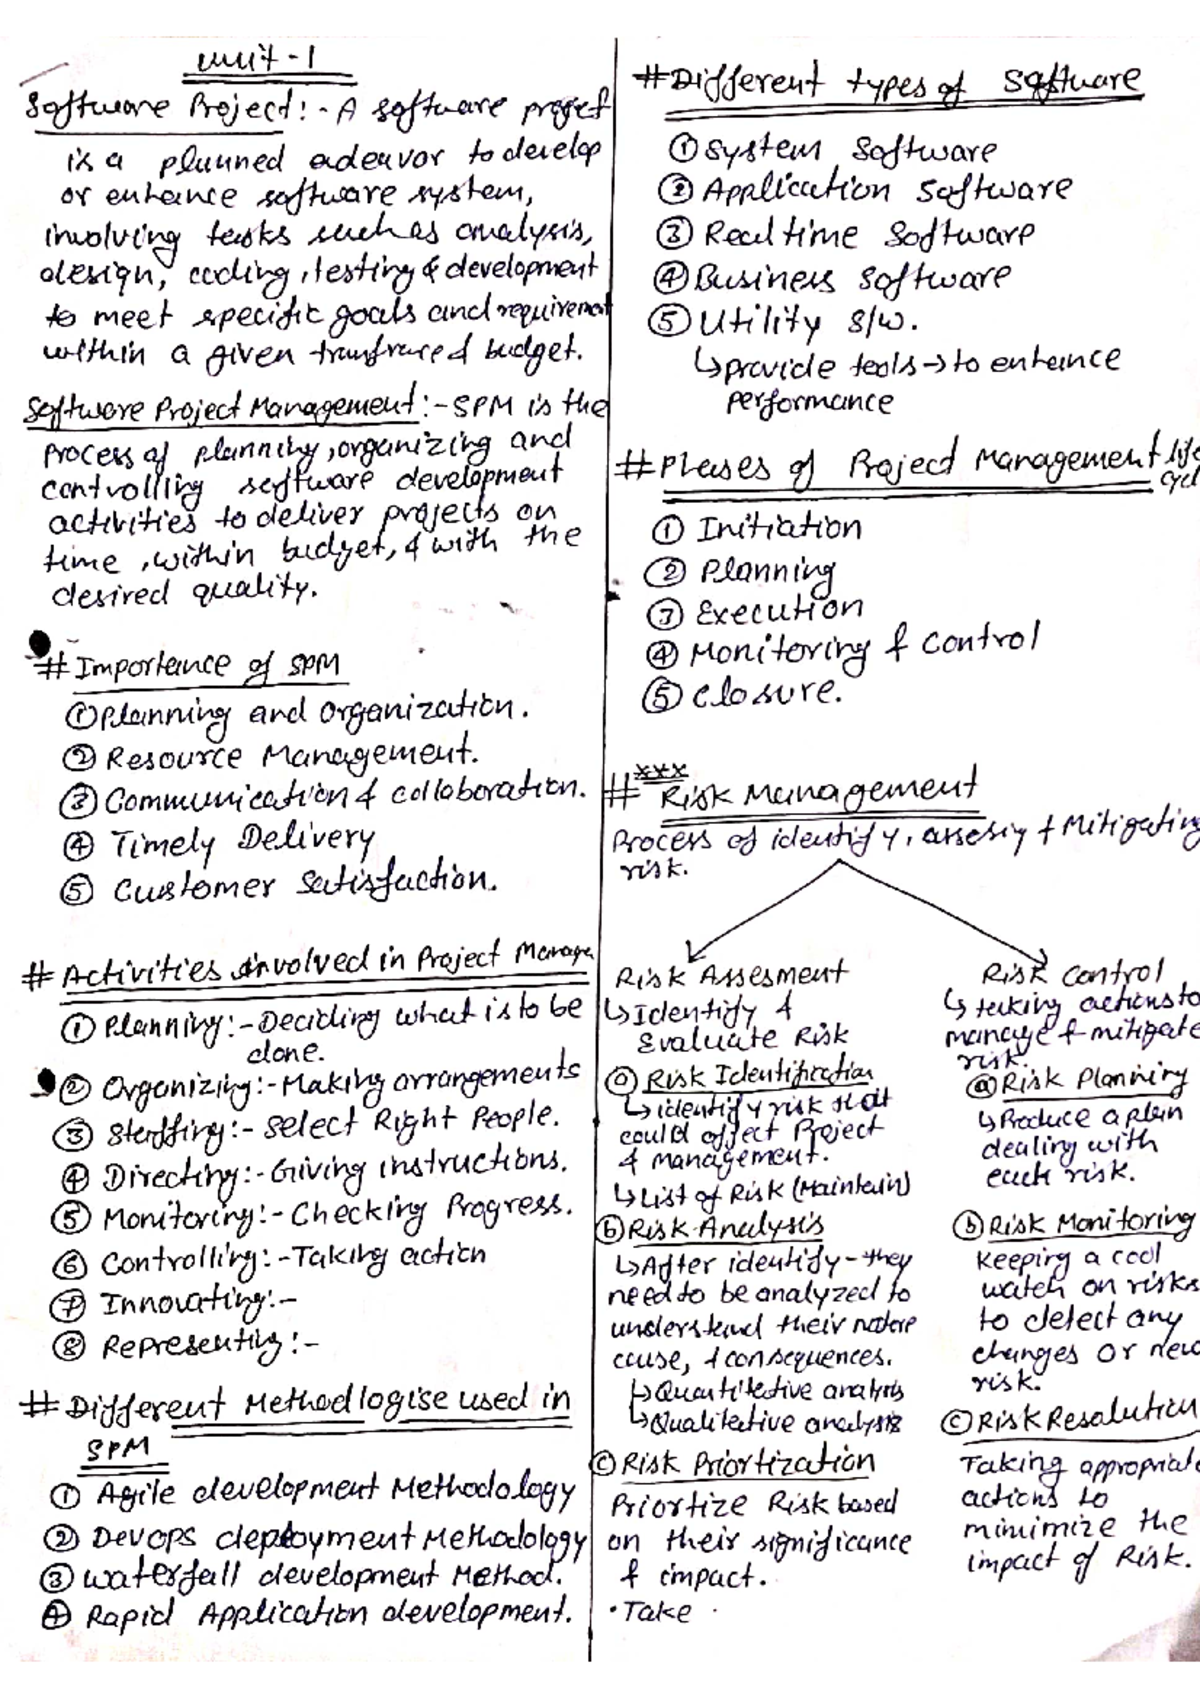 Unit - 1
Software Project :- A software project
is a planned endeavor to develop
or enhance software system,
involving tasks such as analysis,
design, coding, testing & development
to meet specific goals and requirement
within a given & budget.
Software Project Management :- SPM is the
process of planning, organizing and
controlling software development
activities to deliver projects on
time, within budget, & with the
desired quality.
# Importance of SPM
① Planning and organization.
② Resource Management.
③ Communication & collaboration.
④ Timely Delivery
⑤ Customer Satisfaction.
# Activities involved in Project Manage
① Planning :- Deciding what is to be
done.
② Organizing :- Making arrangements
③ Staffing :- Select Right People.
④ Directing :- Giving instructions.
⑤ Monitoring :- Checking Progress.
⑥ Controlling :- Taking action
⑦ Innovating :-
⑧ Representing :-
# Different Methodlogise used in
SPM
① Agile development Methodology
② Devops deployment Methodology
③ waterfall development Method.
④ Rapid Application development.
# Different types of Software
① System Software
② Application Software
③ Real time Software
④ Business Software
⑤ Utility S/W.
↳ provide tools → to enhance
performance
# Phases of Project Management life
cycl
① Initiation
② Planning
③ Execution
④ Monitoring & Control
⑤ Closure.
***
# Risk Management
Process of identify, & Mitigating
risk.
Risk Assesment
↳ Identify &
Evaluate Risk
ⓐ Risk Identification
↳ identify risk that
could affect Project
& management.
↳ List of Risk (Maintain)
ⓑ Risk Analysis
↳ After identify - they
need to be analyzed to
understand their nature
cause, & consequences.
↳ Quantitative analysis
↳ Qualitative analysis
ⓒ Risk Priortization
Priortize Risk based
on their significance
& impact.
• Take
Risk Control
↳ taking actions to
manage & mitigate
risk.
ⓐ Risk Planning
↳ Produce a plan
dealing with
each risk.
ⓑ Risk Monitoring
Keeping a
watch on risks
to detect any
changes or new
risk.
ⓒ Risk Resolution
Taking appropriate
actions to
minimize the
impact of Risk.